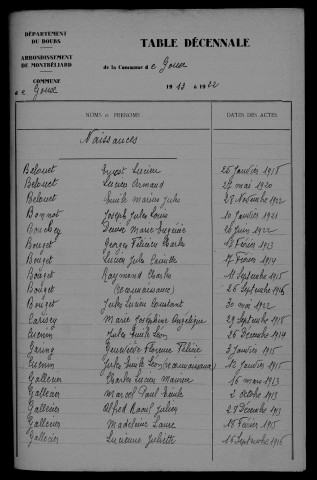 DÉPARTEMENT
DU DOUBS
ARRONDISSEMENT
DE MONTBÉLIARD
COMMUNE
de Goux
TABLE DÉCENNALE
de la Commune de Goux
1913 à 1922
NOMS et PRÉNOMS DATES DES ACTES
Naissances
Belouet Ernest Lucien 25 Janvier 1918
Belouet Lucien Armand 29 mai 1920
Belouet Emile Marius Jules 28 Novembre 1922
Bonnot Joseph Jules Louis 10 Janvier 1921
Bouchey Denise Marie Eugénie 28 Juin 1922
Bouget Georges Félicien Charles 12 Février 1913
Bouget Lucien Jules 17 Février 1914
Bouget Raymond Charles 11 Septembre 1915
Bouget (reconnaissance) 26 Septembre 1915
Bouget Jules Lucien Constant 30 mai 1922
Carisey Marie Joséphine Angélique 29 Septembre 1918
Cuenin Jules Emile Léon 26 Décembre 1914
Garing Geneviève Florence Félicie 3 Janvier 1915
Cuenin Jules Emile Léon (reconnaissance) 12 Janvier 1915
Gallecier Charles Lucien Maurice 16 mars 1913
Gallecier Marcel Paul Emile 2 octobre 1913
Gallecier Alfred Raoul Julien 27 Décembre 1913
Gallecier Madeleine Laure 15 Février 1915
Gallecier Lucienne Juliette 15 Septembre 1916